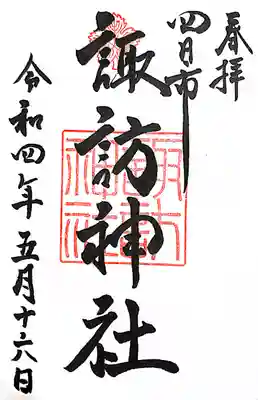 春拝
四日市
諏訪神社
令和四年五月十六日